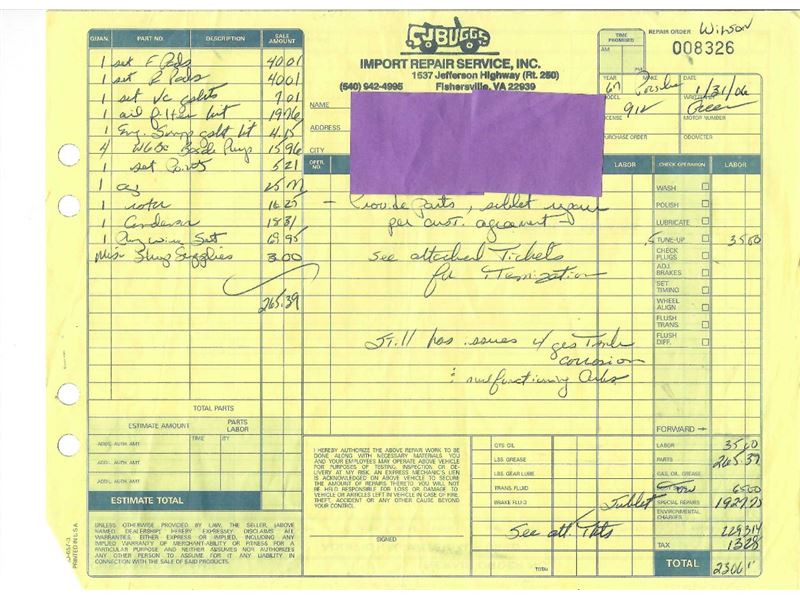 CJ BUGGS
IMPORT REPAIR SERVICE, INC.
1537 Jefferson Highway (Rt. 250)
(540) 942-4995 Fishersville, VA 22939
TIME PROMISED
AM
PM
REPAIR ORDER Wilson
008326
YEAR 67 MAKE Porsche DATE 1/31/06
MODEL 912 WRITTEN BY Green
LICENSE MOTOR NUMBER
PURCHASE ORDER ODOMETER
NAME
ADDRESS
CITY
QUAN. PART NO. DESCRIPTION SALE AMOUNT
1 set F Pads 40.01
1 set R Pads 40.01
1 set Vc gskts 7.01
1 oil filter kit 19.76
1 Eng. Sump gskt kit 4.15
4 W6BC Bosch Plugs 15.96
1 set Points 5.21
1 cap
1 rotor 16.25
1 Condenser 18.31
1 Plug wire Set 69.95
Misc Shop Supplies 3.00
265.39
OPER. NO. LABOR CHECK OPERATION LABOR
- Provide parts, sublet repair
per cust. agreement
See attached Tickets
for Itemization
Still has issues w/ gas Tank
corrosion
: malfunctioning Carbs.
WASH
POLISH
LUBRICATE
.5 TUNE-UP 35.00
CHECK PLUGS
ADJ. BRAKES
SET TIMING
WHEEL ALIGN
FLUSH TRANS
FLUSH DIFF.
FORWARD →
TOTAL PARTS
ESTIMATE AMOUNT PARTS LABOR
ADD'L AUTH. AMT TIME BY
ADD'L AUTH. AMT
ADD'L AUTH. AMT
ESTIMATE TOTAL
UNLESS OTHERWISE PROVIDED BY LAW, THE SELLER, (ABOVE
NAMED DEALERSHIP) HEREBY EXPRESSLY DISCLAIMS ALL
WARRANTIES, EITHER EXPRESS OR IMPLIED, INCLUDING ANY
IMPLIED WARRANTY OF MERCHANTABILITY OR FITNESS FOR A
PARTICULAR PURPOSE AND NEITHER ASSUMES NOR AUTHORIZES
ANY OTHER PERSON TO ASSUME FOR IT ANY LIABILITY IN
CONNECTION WITH THE SALE OF SAID PRODUCTS.
I HEREBY AUTHORIZE THE ABOVE REPAIR WORK TO BE
DONE ALONG WITH NECESSARY MATERIALS. YOU
AND YOUR EMPLOYEES MAY OPERATE ABOVE VEHICLE
FOR PURPOSES OF TESTING, INSPECTION OR DE-
LIVERY AT MY RISK. AN EXPRESS MECHANIC'S LIEN
IS ACKNOWLEDGED ON ABOVE VEHICLE TO SECURE
THE AMOUNT OF REPAIRS THERETO. YOU WILL NOT
BE HELD RESPONSIBLE FOR LOSS OR DAMAGE TO
VEHICLE OR ARTICLES LEFT IN VEHICLE IN CASE OF FIRE,
THEFT, ACCIDENT OR ANY OTHER CAUSE BEYOND
YOUR CONTROL.
SIGNED
QTS. OIL
LBS. GREASE
LBS. GEAR LUBE
TRANS. FLUID
BRAKE FLUID
Sublet
See att. Tkts
TOTAL
LABOR 35.00
PARTS 265.39
GAS, OIL, GREASE
Tow 65.00
SPECIAL REPAIRS
ENVIRONMENTAL CHARGES
TAX 13.28
TOTAL
PRINTED IN U.S.A.